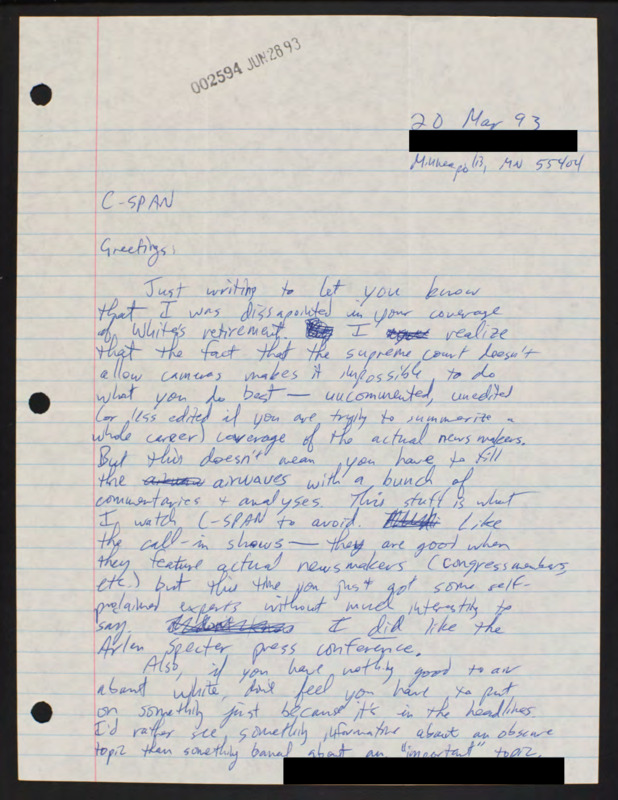 002594 JUN 28 93
20 Mar 93
Minneapolis, MN 55404
C-SPAN
Greetings,
Just writing to let you know
that I was dissapointed in your coverage
of White's retirement I realize
that the fact that the supreme court doesn't
allow cameras makes it impossible to do
what you do best — uncommented, unedited
(or less edited if you are trying to summarize a
whole career) coverage of the actual news makers.
But this doesn't mean you have to fill
the airwaves with a bunch of
commentaries + analyses. This stuff is what
I watch C-SPAN to avoid. Like
the call-in shows — they are good when
they feature actual newsmakers (congressmembers,
etc.) but this time you just got some self-
proclaimed experts without much interesting to
say. I did like the
Arlen Specter press conference.
Also, if you have nothing good to air
about White, don't feel you have to put
on something just because it's in the headlines.
I'd rather see something informative about an obscure
topic than something banal about an "important" topic.